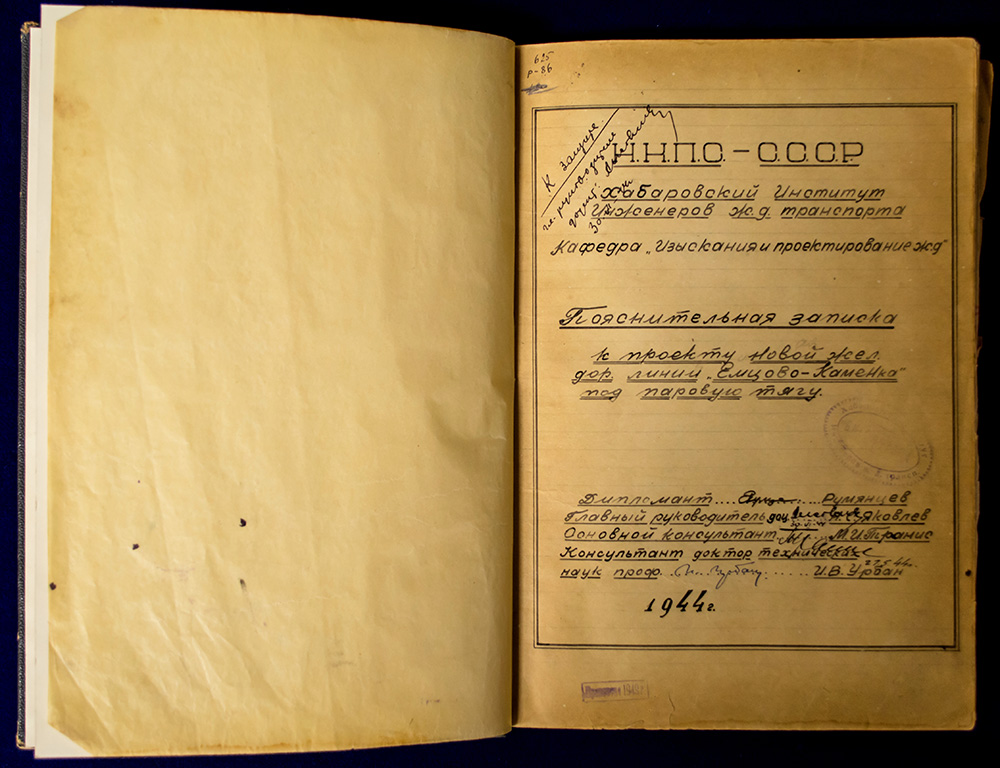 625
Р-86
К защите
Н.К.П.С. – С.С.С.Р.
Хабаровский Институт
Инженеров ж.д. транспорта
Кафедра „Изыскания и проектирование ж.д"
Пояснительная записка
к проекту новой жел.
дор. линии „Емцово-Каменка"
под паровую тягу.
Дипломант .... Румянцев
Главный руководитель доц. А.С. Яковлев
Основной консультант М.И. Транис
Консультант доктор технических
наук проф. ..... И.В. Урбан
1944 г.